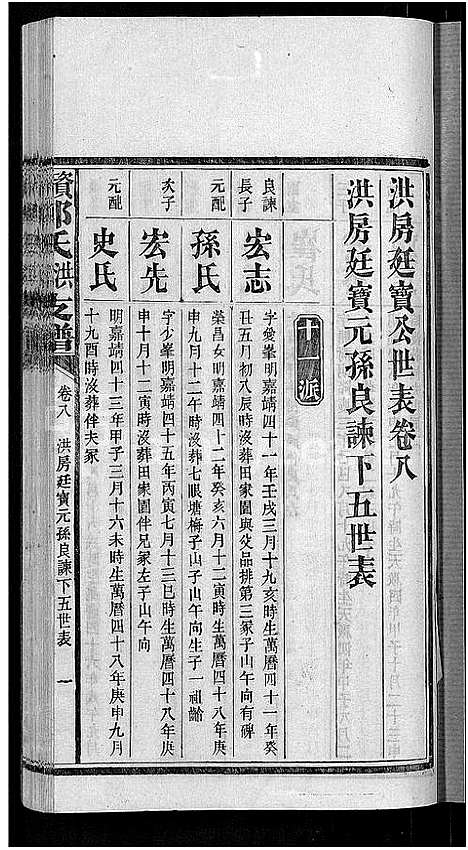 洪房廷寶公世表卷八
洪房廷寶元孫良諫下五世表
十一派
良諫長子
宏志
字愛峯明嘉靖四十一年壬戌三月十九亥時生萬曆四十一年癸
丑五月初八辰時沒葬田家園與父品排第三冢子山午向有碑
元配
孫氏
榮昌女明嘉靖四十二年癸亥六月十二寅時生萬曆四十八年庚
申九月十二午時沒葬七眼塘梅子山子山午向生子一祖齡
次子
宏先
字少峯明嘉靖四十五年丙寅七月十三巳時生萬曆四十八年庚
申十月十二寅時沒葬田家園伴兄冢左子山午向
元配
史氏
明嘉靖四十三年甲子三月十六未時生萬曆四十八年庚申九月
十九酉時沒葬伴夫冢
氏洪支譜
卷八
洪房廷寶元孫良諫下五世表
一